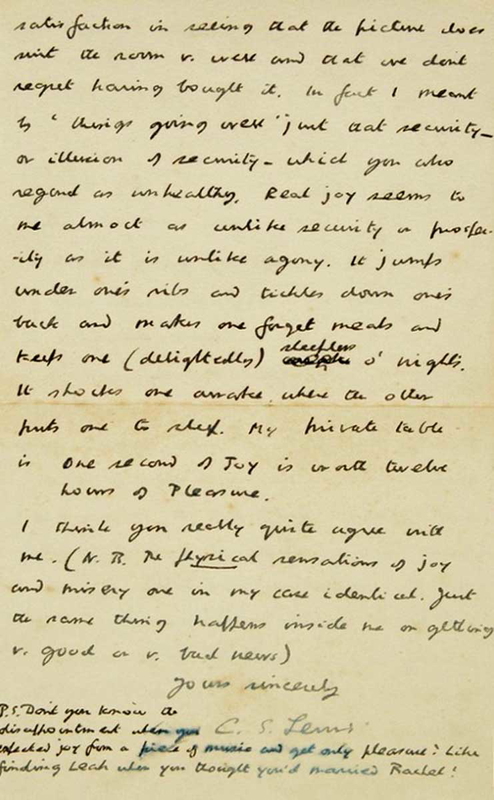 satisfaction in seeing that the picture does
suit the room v. well and that we don't
regret having bought it. In fact I meant
by 'things going well' just that security—
or illusion of security— which you also
regard as unhealthy. Real joy seems to
me almost as unlike security or prosper-
-ity as it is unlike agony. It jumps
under one's ribs and tickles down one's
back and makes one forget meals and
keeps one (delightedly) sleepless o' nights.
It shocks one awake when the other
puts one to sleep. My private table
is one second of Joy is worth twelve
hours of Pleasure.
I think you really quite agree with
me. (N.B. The physical sensations of joy
and misery are in my case identical. Just
the same thing happens inside me on getting
v. good or v. bad news)
Yours sincerely
C. S. Lewis
P.S. Don't you know the
disappointment when you
expected joy from a piece of music and get only pleasure? Like
finding Leah when you thought you'd married Rachel!